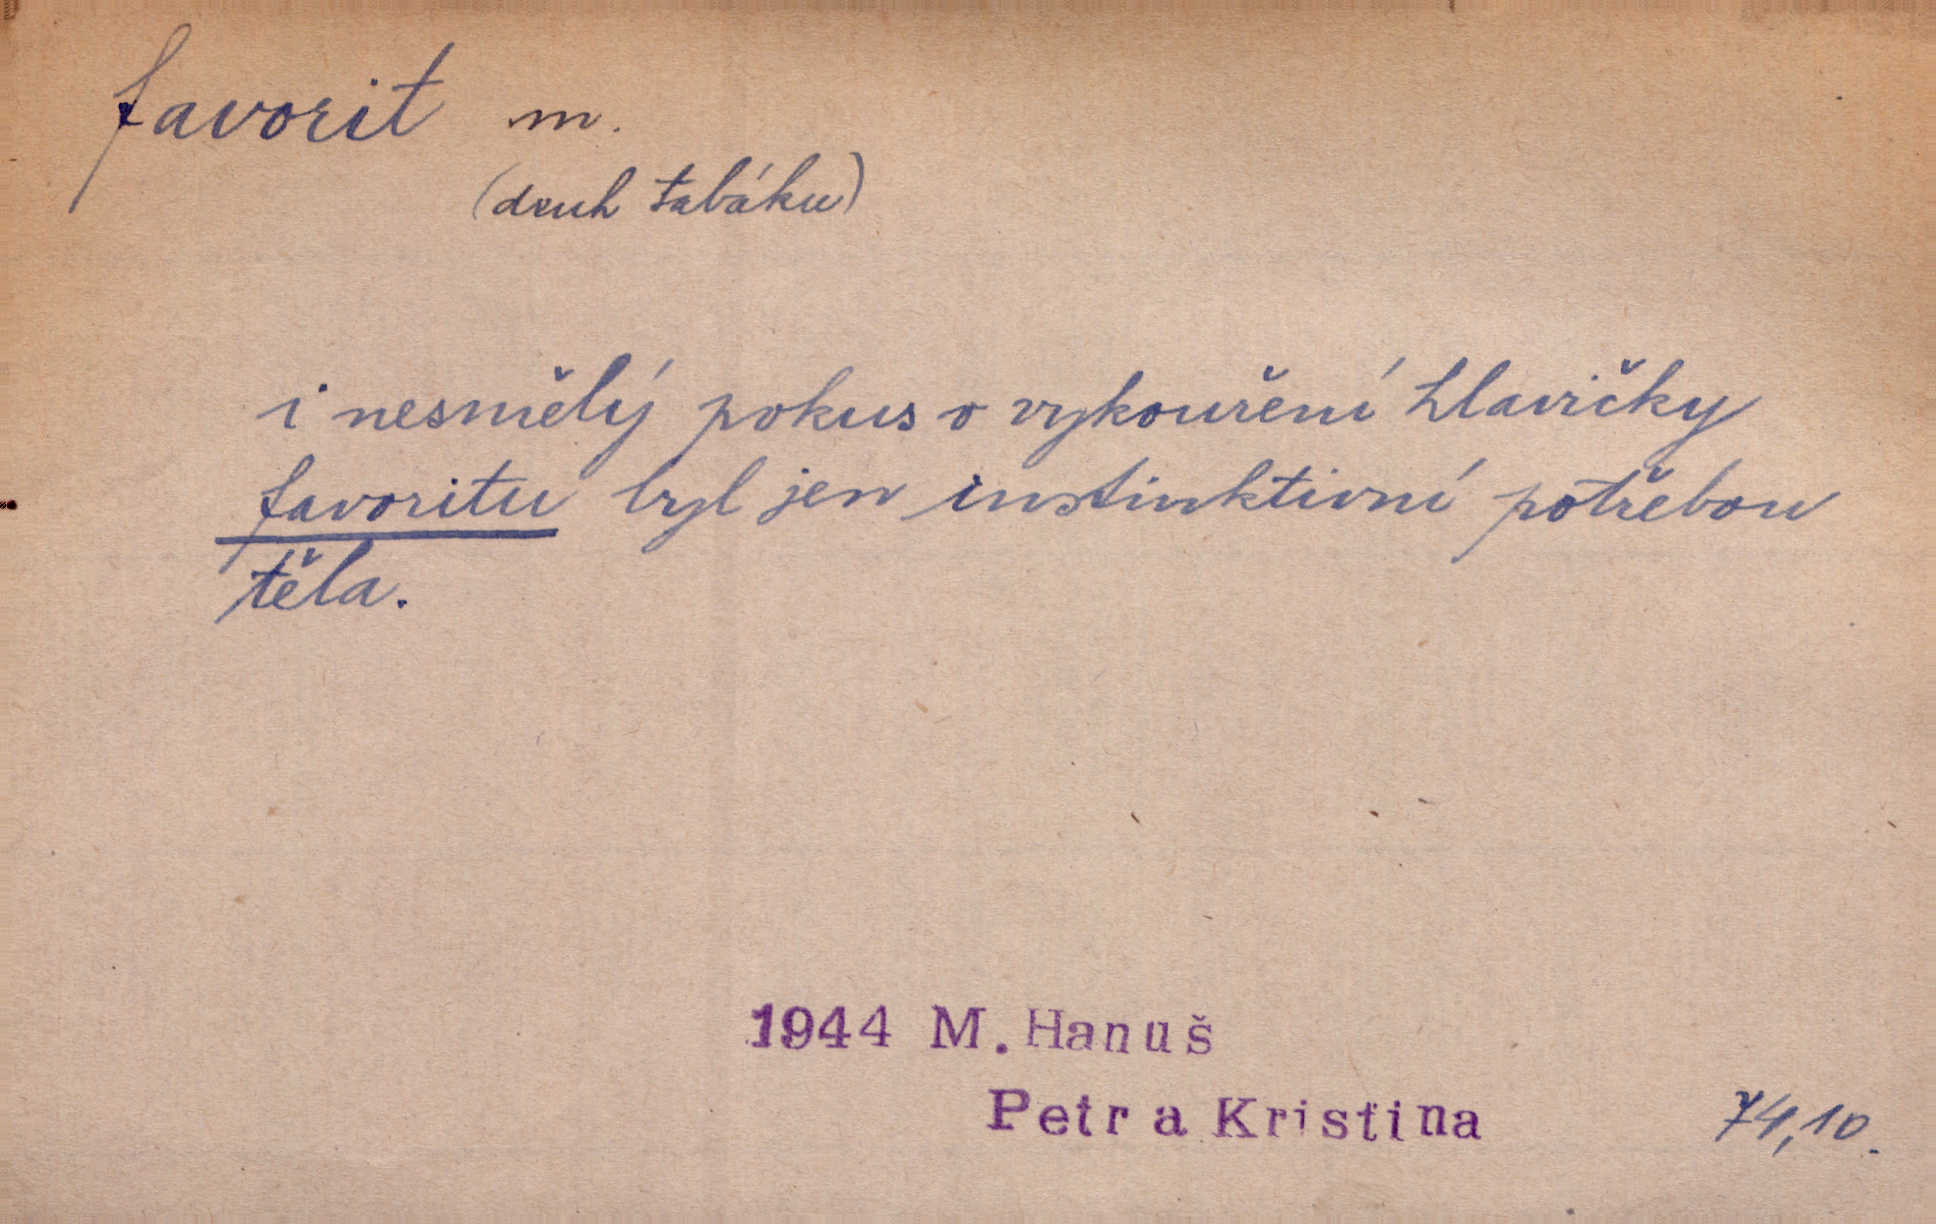 favorit m.
(druh tabáku)
i nesmělý pokus o vykouření hlavičky
favoritu byl jen instinktivní potřebou
těla.
1944 M. Hanuš
Petr a Kristina
74,10.